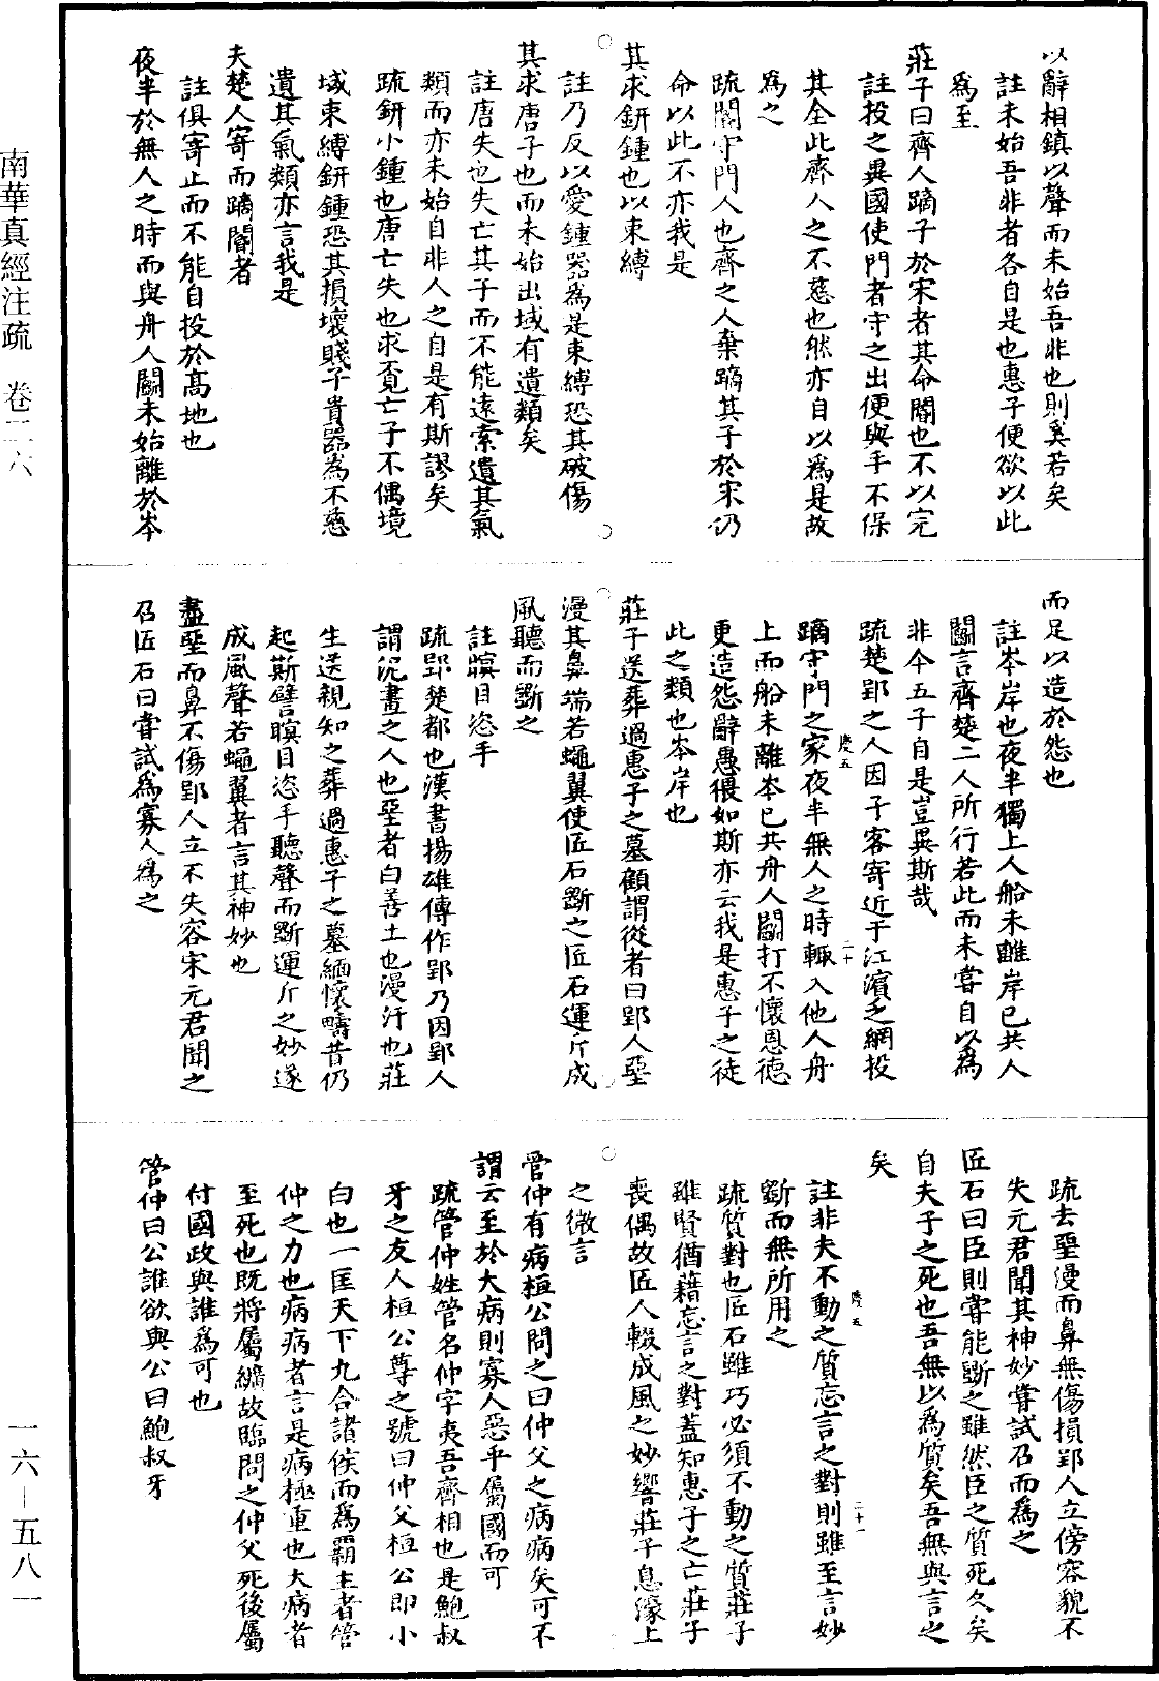 以辭相鎮以聲而未始吾非也則奚若矣
註未始吾非者各自是也惠子便欲以此
爲至
莊子曰齊人蹢子於宋者其命閽也不以完
註投之異國使門者守之出便與手不保
其全此齊人之不慈也然亦自以爲是故
爲之
疏閽守門人也齊之人棄蹢其子於宋仍
命以此不亦我是
其求鈃鍾也以束縛
註乃反以愛鍾器爲是束縛恐其破傷
其求唐子也而未始出域有遺類矣
註唐失也失亡其子而不能遠索遺其氣
類而亦未始自非人之自是有斯謬矣
疏鈃小鍾也唐亡失也求覓亡子不偶境
域束縛鈃鍾恐其損壞賤子貴器爲不慈
遺其氣類亦言我是
夫楚人寄而蹢閽者
註俱寄止而不能自投於高地也
夜半於無人之時而與舟人鬭未始離於岑
而足以造於怨也
註岑岸也夜半獨上人船未離岸已共人
鬭言齊楚二人所行若此而未甞自以爲
非今五子自是豈異斯哉
疏楚郢之人因子客寄近于江濱乏網投
蹢守門之家夜半無人之時輙入他人舟
上而船未離岑已共舟人鬭打不懷恩德
更造怨辭愚猥如斯亦云我是惠子之徒
此之類也岑岸也
莊子送葬過惠子之墓顧謂從者曰郢人堊
漫其鼻端若蠅翼使匠石斲之匠石運斤成
風聽而斲之
註瞑目恣手
疏郢楚都也漢書揚雄傳作郢乃因郢人
謂泥畫之人也堊者白善土也漫汙也莊
生送親知之葬過惠子之墓緬懷疇昔仍
起斯譬瞑目恣手聽聲而斲運斤之妙遂
成風聲若蠅翼者言其神妙也
盡堊而鼻不傷郢人立不失容宋元君聞之
召匠石曰甞試爲寡人爲之
疏去堊漫而鼻無傷損郢人立傍容貌不
失元君聞其神妙甞試召而爲之
匠石曰臣則甞能斲之雖然臣之質死久矣
自夫子之死也吾無以爲質矣吾無與言之
矣
註非夫不動之質忘言之對則雖至言妙
斲而無所用之
疏質對也匠石雖巧必須不動之質莊子
雖賢猶藉忘言之對蓋知惠子之亡莊子
喪偶故匠人輟成風之妙響莊子息濠上
之微言
管仲有病桓公問之曰仲父之病病矣可不
謂云至於大病則寡人惡乎屬國而可
疏管仲姓管名仲字夷吾齊相也是鮑叔
牙之友人桓公尊之號曰仲父桓公即小
白也一匡天下九合諸侯而爲霸主者管
仲之力也病病者言是病極重也大病者
至死也既將屬纊故臨問之仲父死後屬
付國政與誰爲可也
管仲曰公誰欲與公曰鮑叔牙
南華真經注疏　卷二六
一六—五八一
慶五
二十
慶五
二十一